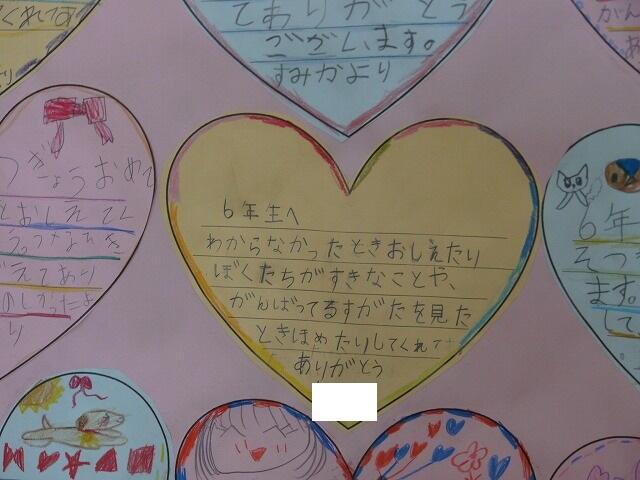 くれてあ
てありがとう
ございます。
すみかより
がん
あ
つぎょうおめで
とおしえてく
えてあり
のしかったよ
り
6年生へ
わからなかったときおしえたり
ぼくたちがすきなことや、
がんばってるすがたを見た
ときほめたりしてくれて
ありがとう
6年
そつき
ます。
して